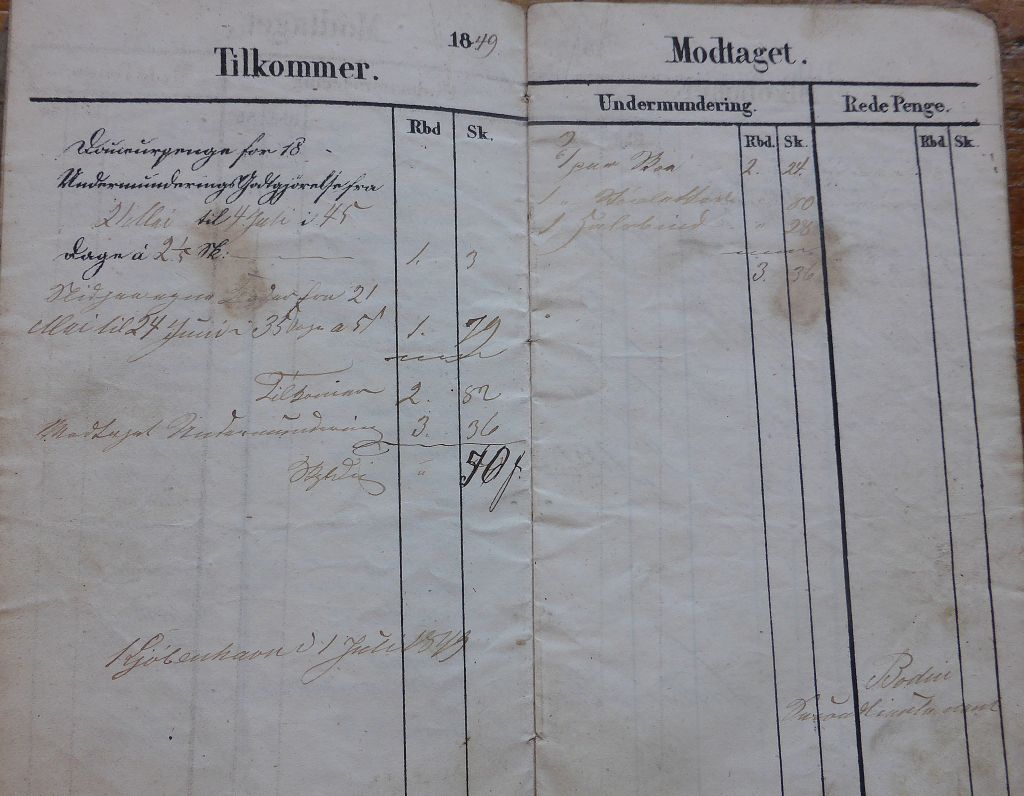 1849
Tilkommer.
Rbd Sk.
Douceurpenge for 18
Undermunderings Godtgjørelse fra
21 Mai til 4 Juli i 45
Dage á 2 1/5 Sk: 1. 3
fra 21
Mai til 24 Juni i 35 Dage a 5 1. 79
Tilkommer 2. 82
Modtaget Undermundering 3. 36
Skyldig " 50
Kjöbenhavn d 1 Juli 1849
Modtaget.
Undermundering. Rede Penge.
Rbd. Sk. Rbd. Sk.
1 par Skoe 2. 24
1 " " 80
1 Halsbind " 28
3. 36
Bodin